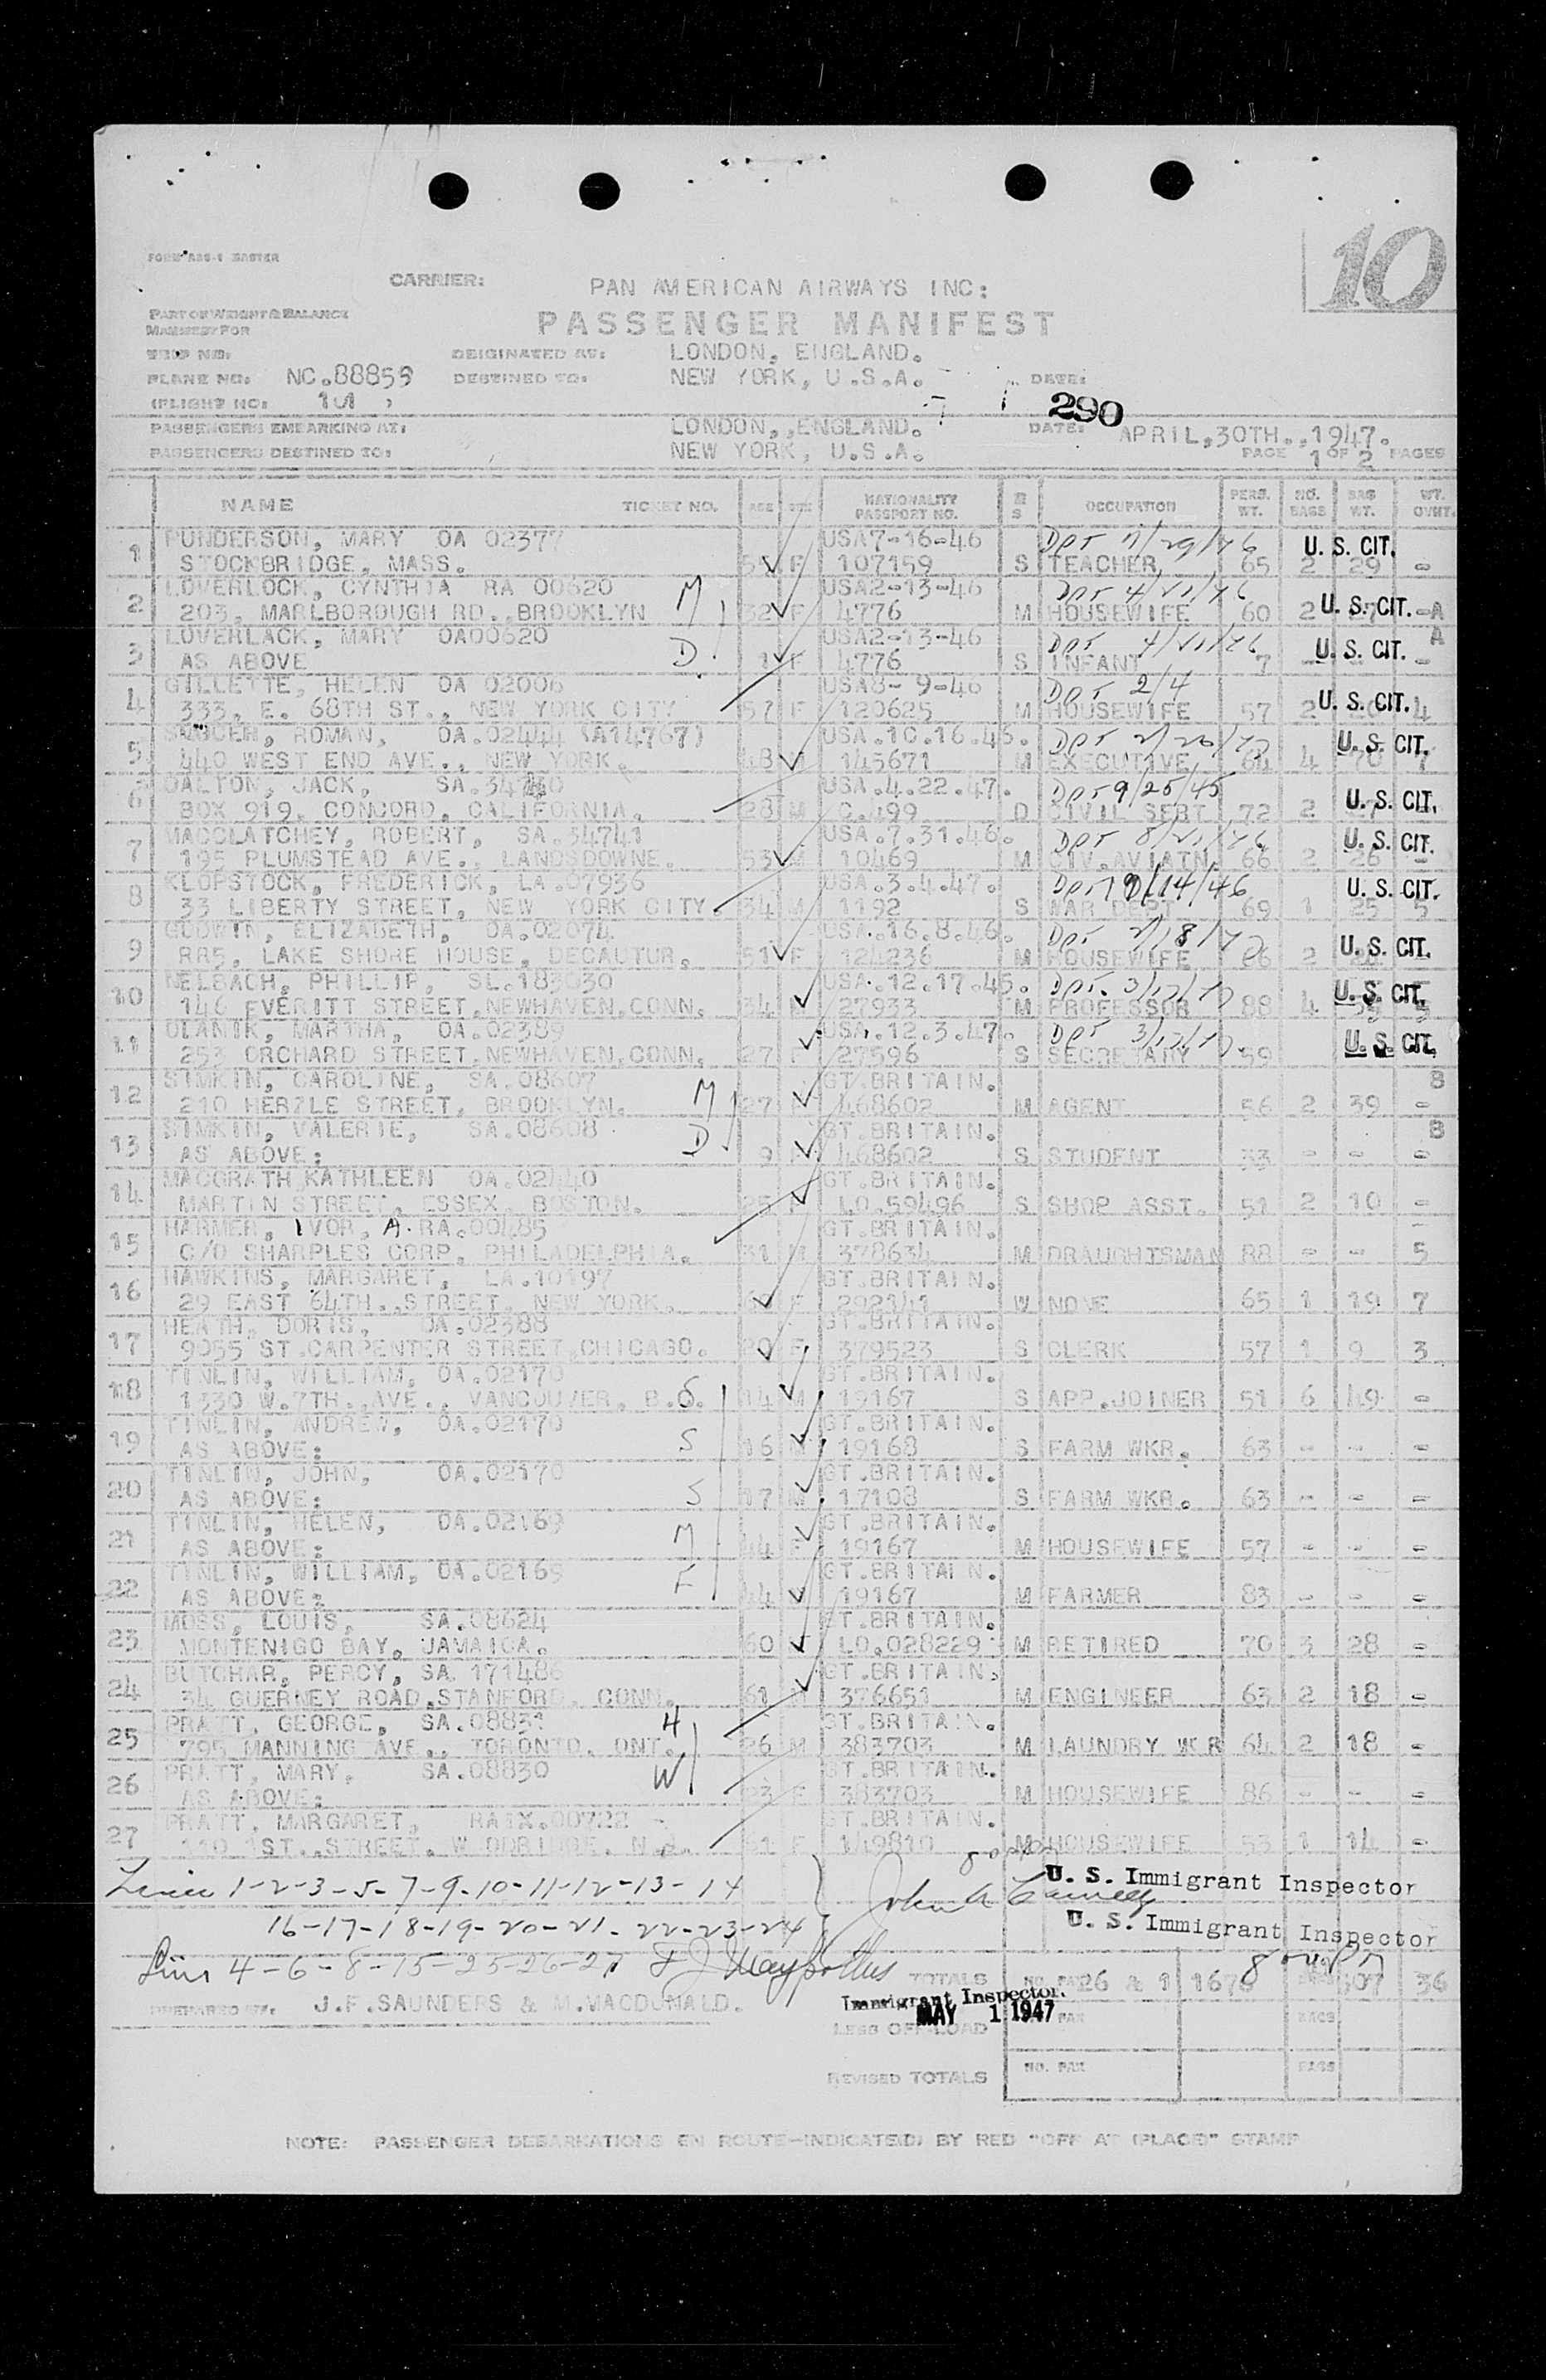 10
FORM ABS-1 MASTER
CARRIER: PAN AMERICAN AIRWAYS INC:
PART OF WEIGHT & BALANCE
MANIFEST FOR
PASSENGER MANIFEST
TRIP NO: ORIGINATED AT: LONDON, ENGLAND.
PLANE NO: NC.88859 DESTINED TO: NEW YORK, U.S.A. DATE:
(FLIGHT NO: 101 )
290
PASSENGERS EMBARKING AT: LONDON,,ENGLAND. DATE: APRIL,30TH.,1947.
PASSENGERS DESTINED TO: NEW YORK, U.S.A. PAGE 1 OF 2 PAGES
NAME TICKET NO. AGE SEX NATIONALITY PASSPORT NO. M S OCCUPATION PERS. WT. NO. BAGS BAG WT. WT. OVHT.
1 PUNDERSON, MARY OA 02377 USA7-16-46 U. S. CIT.
STOCKBRIDGE, MASS. F 107159 S TEACHER 65 2 29 -
2 LOVERLOCK, CYNTHIA RA 00620 M USA2-13-46 U. S. CIT.
203, MARLBOROUGH RD., BROOKLYN 32 F 4776 M HOUSEWIFE 60 2 -A
3 LOVERLACK, MARY OA00620 USA2-13-46 A
AS ABOVE D 1 F 4776 S INFANT 7 - U. S. CIT. -
4 GILLETTE, HELEN OA 02006 USA8- 9-46 Dpr 2/4
333, E. 68TH ST., NEW YORK CITY 57 F 120625 M HOUSEWIFE 57 2 U. S. CIT. 4
5 ROMAN, OA.02444 (A14767) USA.10.16.46.
440 WEST END AVE., NEW YORK. 48 M 143671 M EXECUTIVE 64 4 70 7 U. S. CIT.
6 DALTON, JACK, USA.4.22.47. Dpr 9/25/45
BOX 919, CONCORD, CALIFORNIA. 28 M C.499 D CIVIL SERT 72 2 U. S. CIT.
7 MACCLATCHEY, ROBERT, SA.34741 USA.7.31.46. U. S. CIT.
195 PLUMSTEAD AVE., LANDSDOWNE. 53 M 10469 M CIV.AVIATN 66 2 26 -
8 KLOPSTOCK, FREDERICK, LA.07936 USA.3.4.47. U. S. CIT.
33 LIBERTY STREET, NEW YORK CITY. 34 M 1192 S WAR DEPT 69 1 25 5
9 GODWIN, ELIZABETH, OA.02074 USA.16.8.46. U. S. CIT.
RR5, LAKE SHORE HOUSE, DECAUTUR, 51 F 124236 M HOUSEWIFE 66 2
10 NELBACH, PHILLIP, SL.183030 USA.12.17.45. U. S. CIT.
146 EVERITT STREET,NEWHAVEN,CONN. 34 M 27933 M PROFESSOR 88 4
11 OLANIK, MARTHA, OA.02389 USA.12.3.47.
253 ORCHARD STREET,NEWHAVEN,CONN. 27 F 27596 S SECRETARY 59 U. S. CIT.
12 SIMKIN, CAROLINE, SA.08607 M GT.BRITAIN. B
210 HERZLE STREET, BROOKLYN. 27 F 468602 M AGENT 56 2 39 -
13 SIMKIN, VALERIE, SA.08608 GT.BRITAIN. B
AS ABOVE: D 9 F 468602 S STUDENT 33 - - -
14 MACGRATH KATHLEEN OA.02440 GT.BRITAIN.
MARTIN STREET, ESSEX, BOSTON. 25 F LO.59496 S SHOP ASST. 51 2 10 -
15 HARMER, IVOR, A. RA.00485 GT.BRITAIN.
C/O SHARPLES CORP, PHILADELPHIA. 31 M 378634 M DRAUGHTSMAN 88 - - 5
16 HAWKINS, MARGARET, LA.10197 GT.BRITAIN.
29 EAST 64TH.,STREET, NEW YORK. F 292141 W NONE 65 1 19 7
17 HEATH, DORIS, OA.02388 GT.BRITAIN.
9055 ST.CARPENTER STREET,CHICAGO. 20 F 379523 S CLERK 57 1 9 3
18 TINLIN, WILLIAM, OA.02170 GT.BRITAIN.
1330 W.7TH.,AVE., VANCOUVER, B.C. S 14 M 19167 S APP.JOINER 51 6 49 -
19 TINLIN, ANDREW, OA.02170 GT.BRITAIN.
AS ABOVE: S 16 M 19168 S FARM WKR. 63 - - -
20 TINLIN, JOHN, OA.02170 GT.BRITAIN.
AS ABOVE: S 17 M 17108 S FARM WKR. 63 - - -
21 TINLIN, HELEN, OA.02169 GT.BRITAIN.
AS ABOVE: M 44 F 19167 M HOUSEWIFE 57 - - -
22 TINLIN, WILLIAM, OA.02169 GT.BRITAIN.
AS ABOVE: F 44 M 19167 M FARMER 83 - - -
23 MOSS, LOUIS, SA.08624 GT.BRITAIN.
MONTENIGO BAY, JAMAICA. 60 LO.028229 M RETIRED 70 3 28 -
24 BUTCHAR, PERCY, SA 171486 GT.BRITAIN.
34 GUERNEY ROAD,STANFORD, CONN. 61 M 376651 M ENGINEER 63 2 18 -
25 PRATT, GEORGE, SA.08831 H GT.BRITAIN.
795 MANNING AVE., TORONTO, ONT. 26 M 383703 M LAUNDRY WKR 64 2 18 -
26 PRATT, MARY, SA.08830 W GT.BRITAIN.
AS ABOVE: 23 F 383703 M HOUSEWIFE 86 - - -
27 PRATT, MARGARET, RATX.00722 GT.BRITAIN.
110 1ST.,STREET, WOODRIDGE, N.J. 51 F 149810 M HOUSEWIFE 53 1 14 -
Lines 1-2-3-5-7-9-10-11-12-13-14
U. S. Immigrant Inspector
16-17-18-19-20-21-22-23-24
U. S. Immigrant Inspector
Lines 4-6-8-15-25-26-27
TOTALS NO. PAX 26 & 1 1678 BAGS 507 36
PREPARED BY: J.F.SAUNDERS & M.MACDONALD.
Immigrant Inspector.
MAY 1 1947
LESS OFF-LOAD NO. PAX BAGS
REVISED TOTALS NO. PAX BAGS
NOTE: PASSENGER DEBARKATIONS EN ROUTE-INDICATE(D) BY RED "OFF AT (PLACE)" STAMP